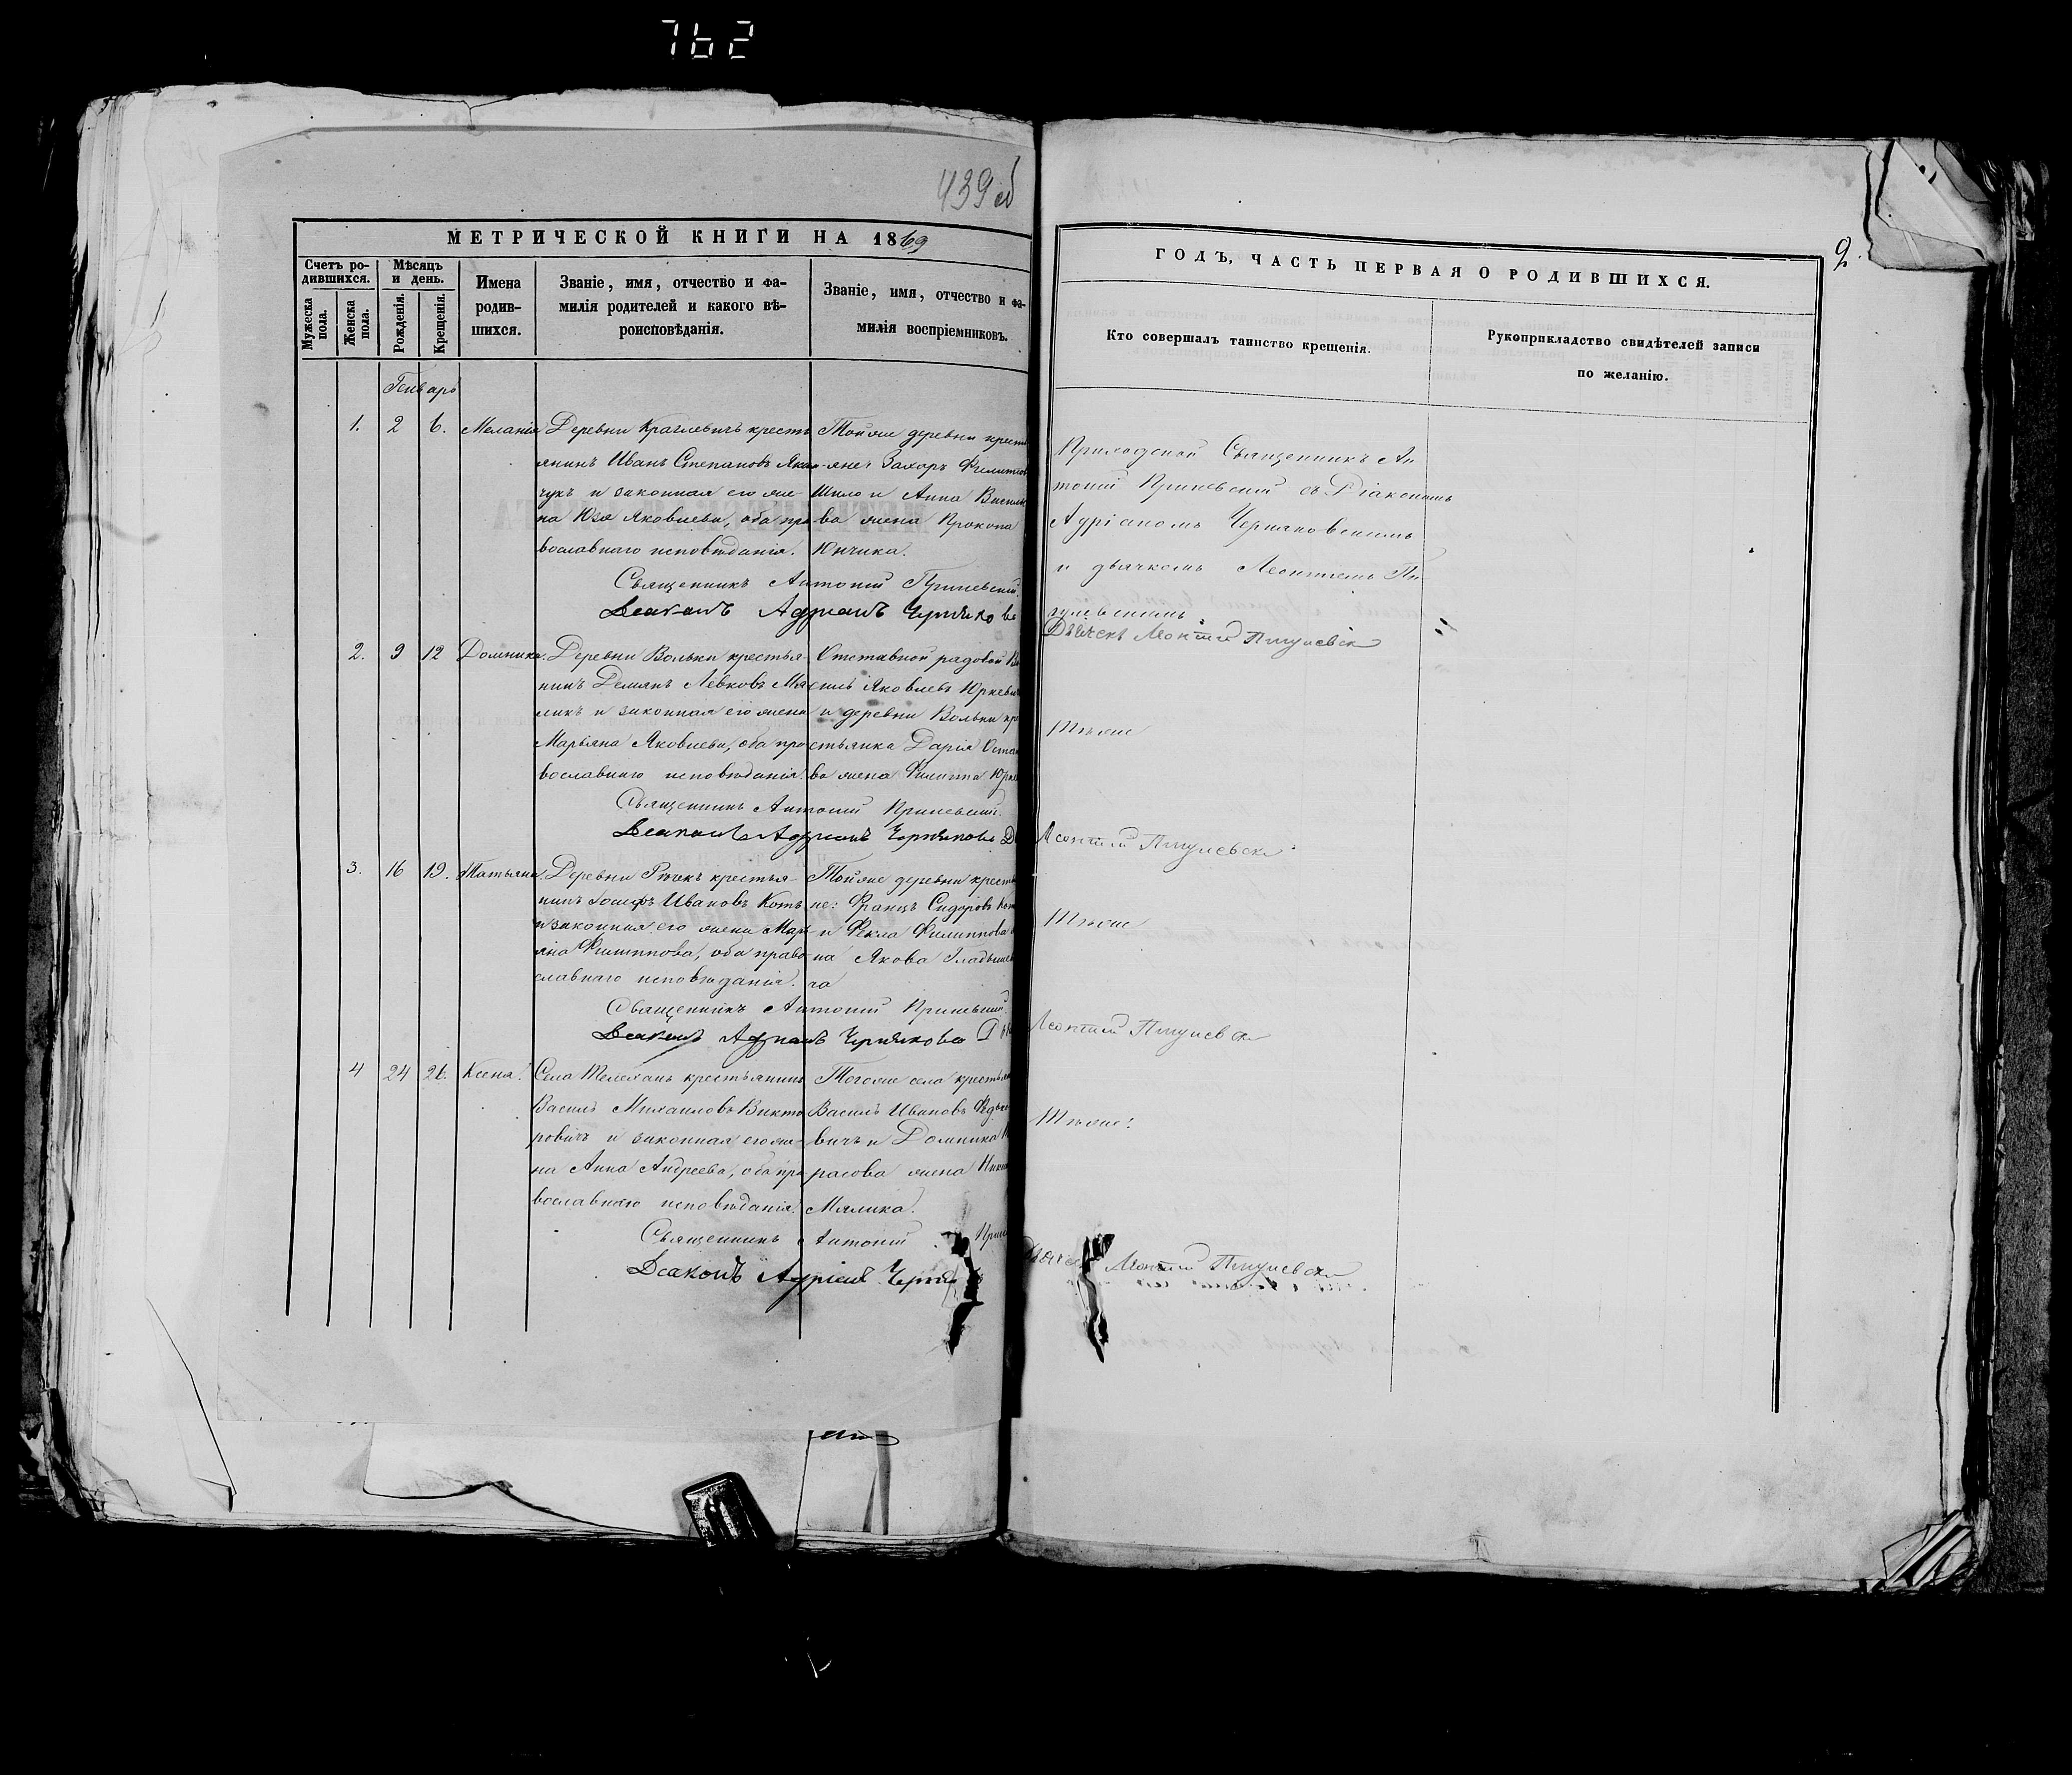 762
439 об
МЕТРИЧЕСКОЙ КНИГИ НА 1869
Счетъ ро-
дившихся.
Мѣсяцъ
и день.
Мужеска
пола.
Женска
пола.
Рожденія.
Крещенія.
Имена
родив-
шихся.
Званіе, имя, отчество и фа-
милія родителей и какого вѣ-
роисповѣданія.
Званіе, имя, отчество и фа-
милія воспріемниковъ.
Генварь
1. 2 6. Меланія
Деревни Краглевичъ кресть
янинъ Иванъ Степановъ
чукъ и законная его же-
на Юзя Яковлева, оба пра
вославнаго исповѣданія.
Тойже деревни кресть
яне: Захаръ Филиппов
Шило и Анна Василье
ва жена Прокопа
Юнчика.
Священникъ Антоній Криневскій
Діаконъ Адріанъ Черняков
2. 9 12 Домникія.
Деревни Вольки крестья-
нинъ Демьянъ Левковъ Мя
ликъ и законная его жена
Марьяна Яковлева, оба пра
вославнаго исповѣданія.
Отставной рядовой Ва
силь Яковлевъ Юркевич
и деревни Вольки кре
стьянка Дарія Остап
ва жена Филиппа Юрке
Священникъ Антоній Криневскій.
Діаконъ Адріанъ Черняковъ
3. 16 19. Татьяна.
Деревни Рѣчекъ крестья-
нинъ Іосифъ Ивановъ Котъ
и законная его жена Марь
яна Филиппова, оба право
славнаго исповѣданія.
Тойже деревни крестья
не: Францъ Сидоровъ Кот
и Фекла Филиппова
на Якова Гладыше
ча
Священникъ Антоній Криневскій.
Діаконъ Адріанъ Черняковъ
4 24 26. Ксенія.
Села Телеханъ крестьянинъ
Василь Михаиловъ Викто
ровичъ и законная его же-
на Анна Андреева, оба пра
вославнаго исповѣданія.
Тогоже села крестьян
Василь Ивановъ
вичъ и Домникія
расова жена
Мялика.
Священникъ Антоній Крин
Діаконъ Адріанъ Черня
2.
ГОДЪ, ЧАСТЬ ПЕРВАЯ О РОДИВШИХСЯ.
Кто совершалъ таинство крещенія.
Рукоприкладство свидѣтелей записи
по желанію.
Приходской Священникъ Ан
тоній Криневскій съ Діакономъ
Адріаномъ Черняковскимъ
и дьячкомъ Леонтіемъ Пи
гулевскимъ.
Дьячекъ Леонтій Пигулевск
Тѣже
Леонтій Пигулевск
Тѣже
Леонтій Пигулевск
Тѣже.
Дьячек Леонтій Пигулевск